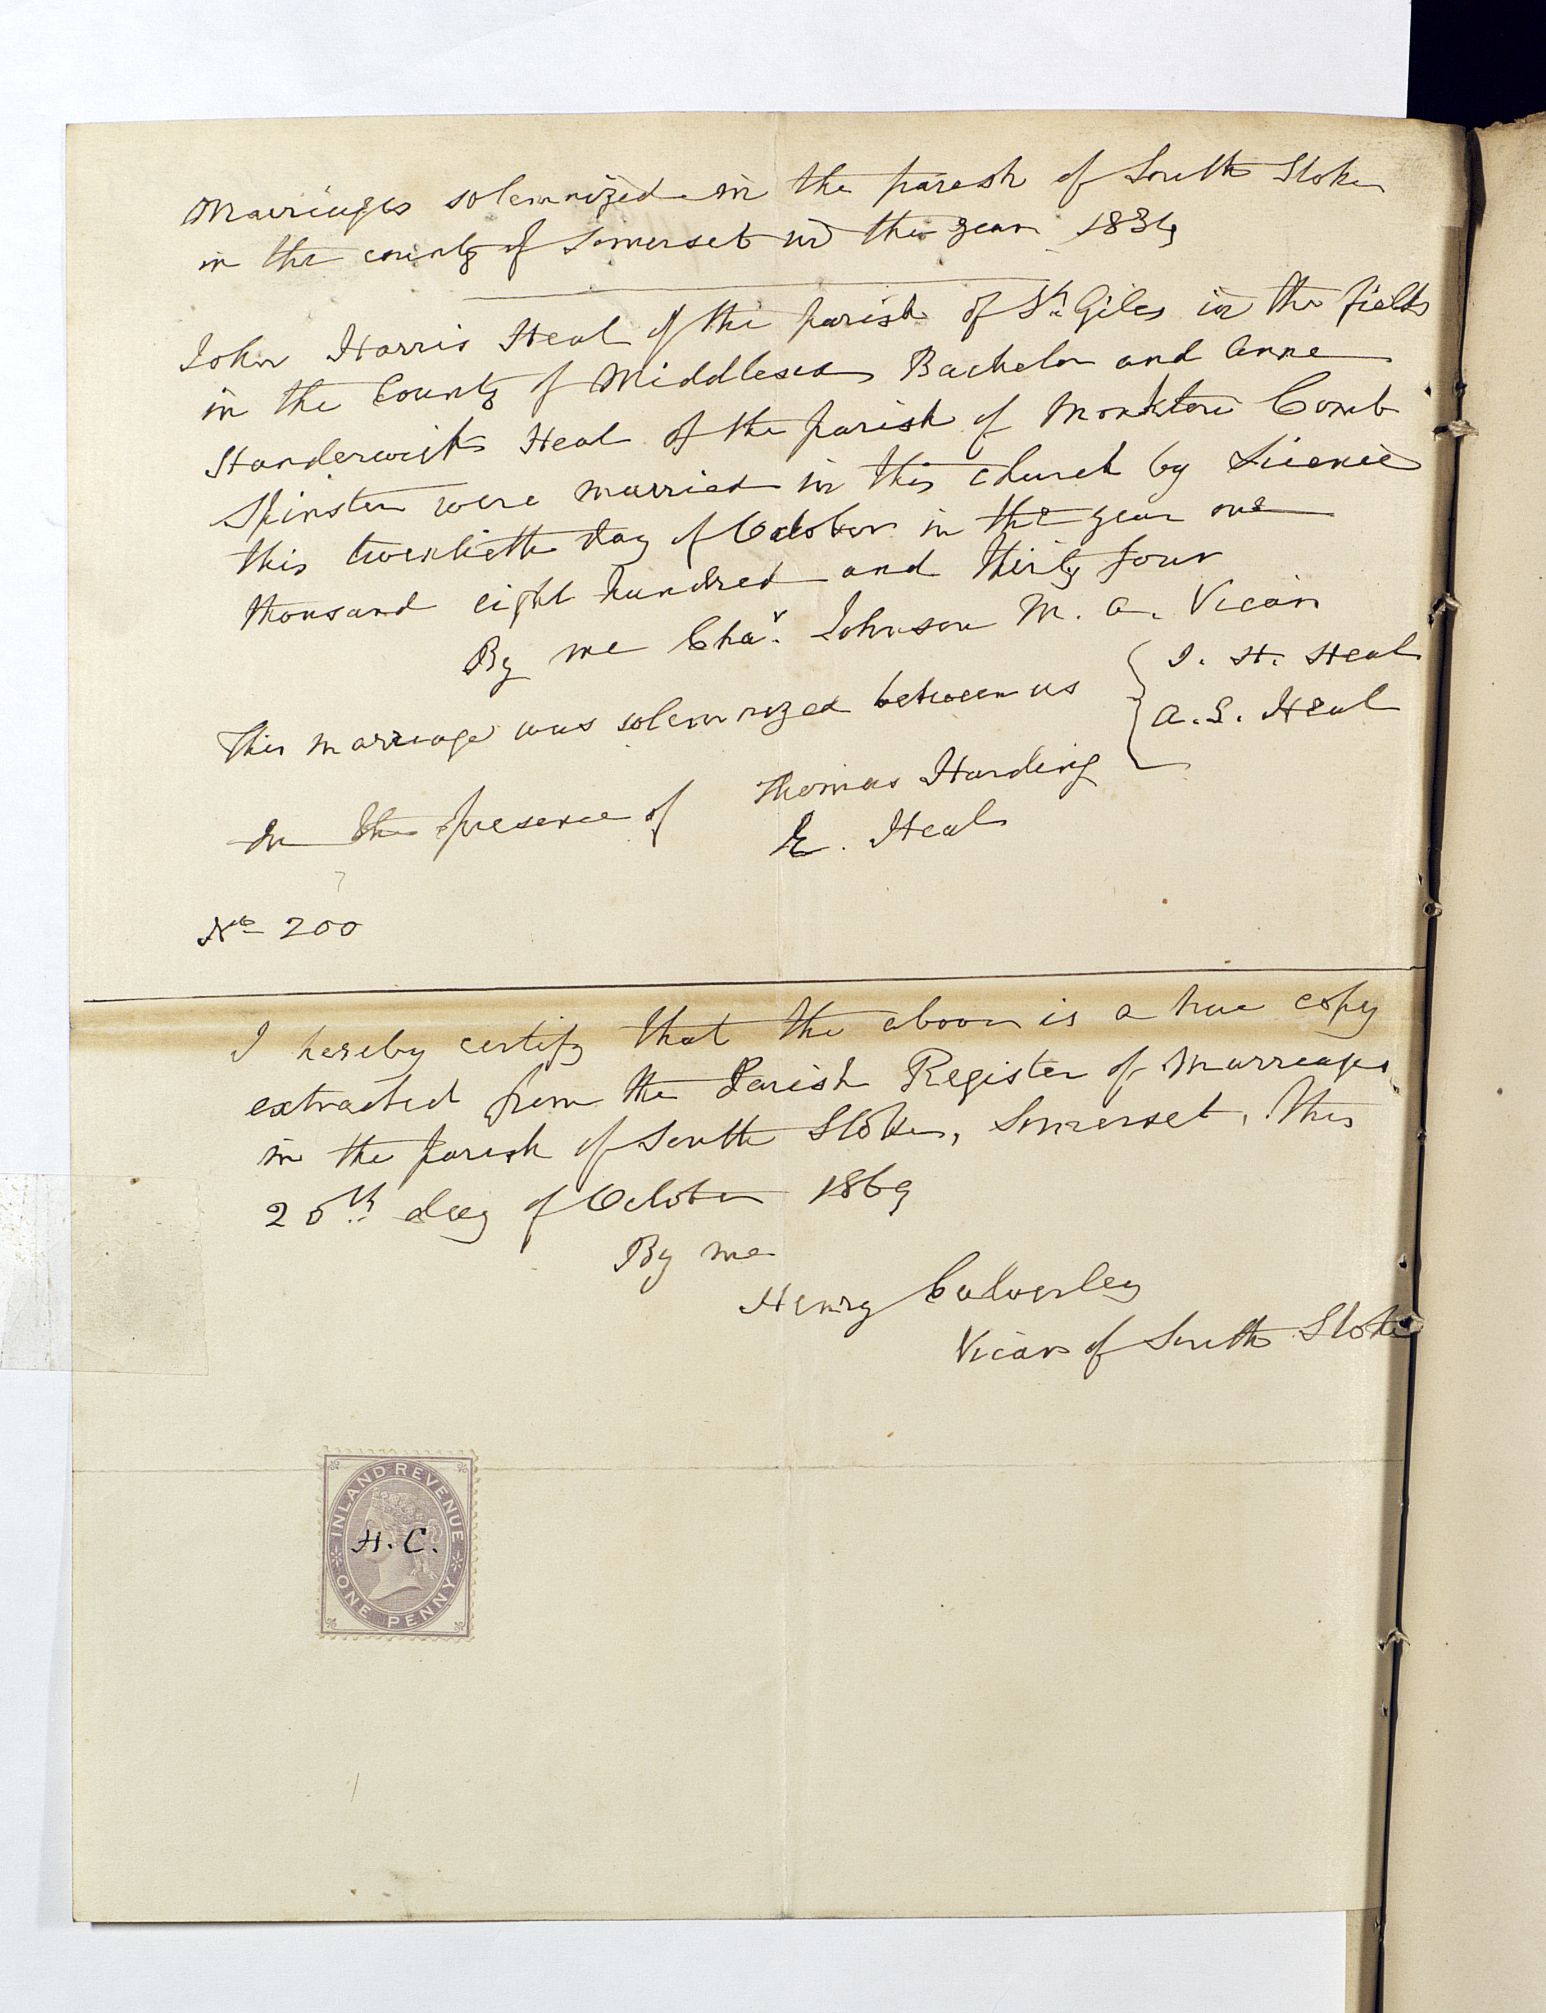 Marriages solemnized in the parish of South Stoke
in the county of Somerset in the year 1834
John Harris Heal of the parish of St. Giles in the fields
in the County of Middlesex Bachelor and Anne
Standerwick Heal of the parish of Monkton Comb
Spinster were married in this church by Licence
this twentieth day of October in the year one
thousand eight hundred and thirty four
By me Chas. Johnson M. A. Vicar
This marriage was solemnized between us { J. H. Heal
A. S. Heal
In the presence of Thomas Harding
E. Heal
No 200
I hereby certify that the above is a true copy
extracted from the Parish Register of Marriages
in the parish of South Stoke, Somerset, this
25th day of October 1869
By me
Henry Calverley
Vicar of South Stoke
INLAND REVENUE
H. C.
ONE PENNY